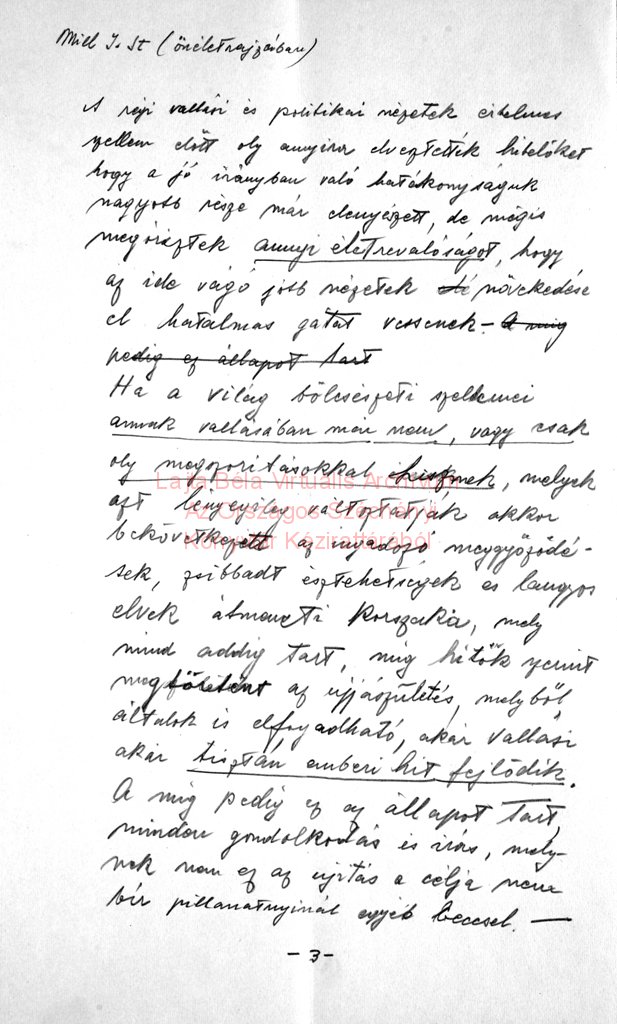 Mill J. St (önéletrajzában)
A régi vallási és politikai nézetek értelmes
szellem előtt oly annyira elvesztették hitelöket
hogy a jó irányban való hatékonyságuk
nagyobb része már elenyészett, de mégis
megőriztek annyi életrevalóságot, hogy
az ide vágó jobb nézetek növekedése
el hatalmas gátat vessenek – A míg
pedig ez állapot tart
Ha a világ bölcsészeti szellemei
annak vallásában már nem, vagy csak
oly megszorításokkal hisznek, melyek
azt lényegileg változtatják akkor
bekövetkezett az ingadozó meggyőződé-
sek, zsibbadt észtehetségek és langyos
elvek átmeneti korszaka, mely
mind addig tart, míg hitök szerint
megtörtént az újjászületés, melyből
általok is elfogadható, akár vallási
akár tisztán emberi hit fejlődik.
A míg pedig ez az állapot tart,
minden gondolkodás és írás, mely-
nek nem ez az újítás a célja nem
bír pillanatnyinál egyéb beccsel. —
- 3 -
Lajta Béla Virtuális Archívum
Az Országos Széchényi
Könyvtár Kézirattárából